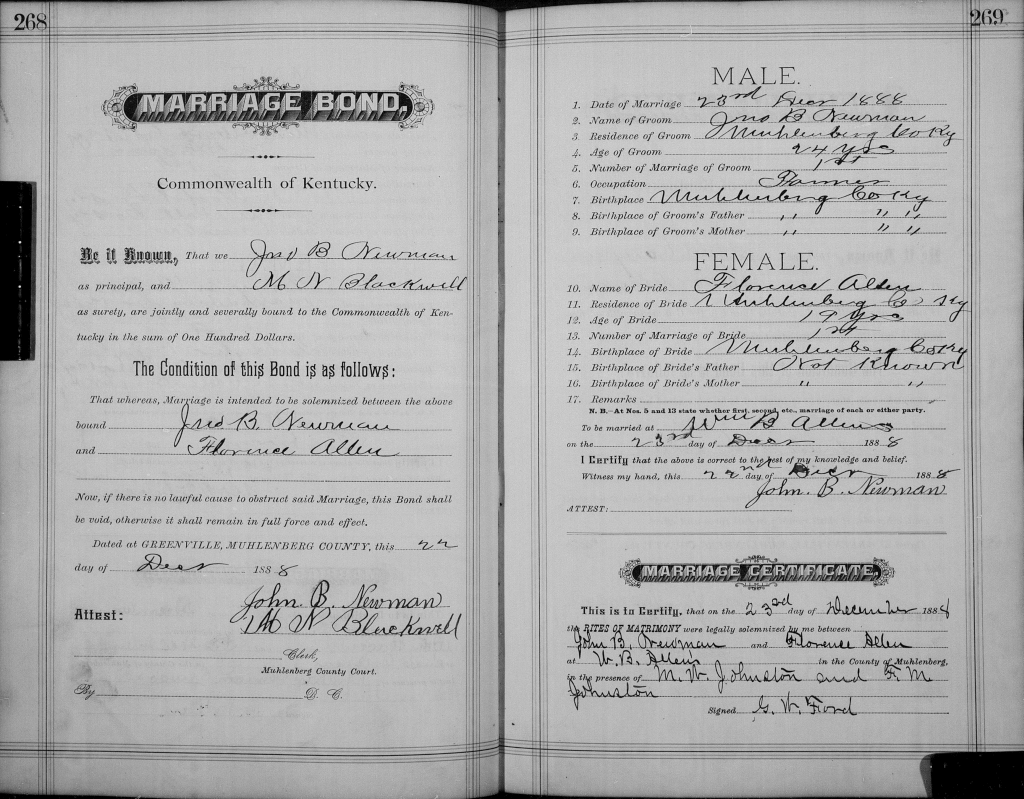 268
MARRIAGE BOND.
Commonwealth of Kentucky.
Be it Known, That we Jno B Newman
as principal, and M N Blackwell
as surety, are jointly and severally bound to the Commonwealth of Ken-
tucky in the sum of One Hundred Dollars.
The Condition of this Bond is as follows:
That whereas, Marriage is intended to be solemnized between the above
bound Jno B. Newman
and Florence Allen
Now, if there is no lawful cause to obstruct said Marriage, this Bond shall
be void, otherwise it shall remain in full force and effect.
Dated at GREENVILLE, MUHLENBERG COUNTY, this 22
day of Decr 1888
John B. Newman
Attest: M N Blackwell
Clerk,
Muhlenberg County Court.
By D. C.
269
MALE.
1. Date of Marriage 23rd Decr 1888
2. Name of Groom Jno B Newman
3. Residence of Groom Muhlenberg Co Ky
4. Age of Groom 24 yrs
5. Number of Marriage of Groom 1st
6. Occupation Farmer
7. Birthplace Muhlenberg Co Ky
8. Birthplace of Groom's Father " " "
9. Birthplace of Groom's Mother " " "
FEMALE.
10. Name of Bride Florence Allen
11. Residence of Bride Muhlenberg Co Ky
12. Age of Bride 19 yrs
13. Number of Marriage of Bride 1st
14. Birthplace of Bride Muhlenberg Co Ky
15. Birthplace of Bride's Father Not Known
16. Birthplace of Bride's Mother " "
17. Remarks
N. B.—At Nos. 5 and 13 state whether first, second, etc., marriage of each or either party.
To be married at Wm B Allens
on the 23rd day of Decr 1888
I Certify that the above is correct to the best of my knowledge and belief.
Witness my hand, this 22nd day of Decr 1888
John. B. Newman
ATTEST:
MARRIAGE CERTIFICATE.
This is to Certify, that on the 23rd day of December 1888
the RITES OF MATRIMONY were legally solemnized by me between
John B. Newman and Florence Allen
at W. B. Allen's in the County of Muhlenberg,
in the presence of M. W. Johnston and F. M
Johnston
Signed G. W. Ford